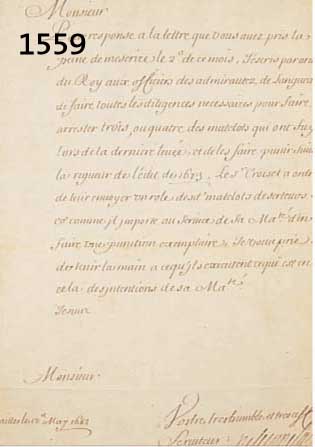 Monsieur
1559
response a la lettre que vous avez pris la
peine de mescrire le 2e de ce mois, J'escris par ordre
du Roy aux officiers des admirautez, de
de faire toutes les diligences necessaires pour faire
arrester trois, ou quatre, des matelots qui ont
lors de la derniere et de les faire punir suiv
la rigueur de l'edit de 1673. Le Sr Croiset a ordre
de leur envoyer un role desd. matelots deserteurs
et comme il importe au service de sa Maté d'en
faire une punition exemplaire, Je vous prie
de tenir la main a ce qu'ils executent ce qui est en
cela des intentions de sa Maté
Je suis
Monsieur
May 1682
Vostre tres humble et tres aff
Serviteur